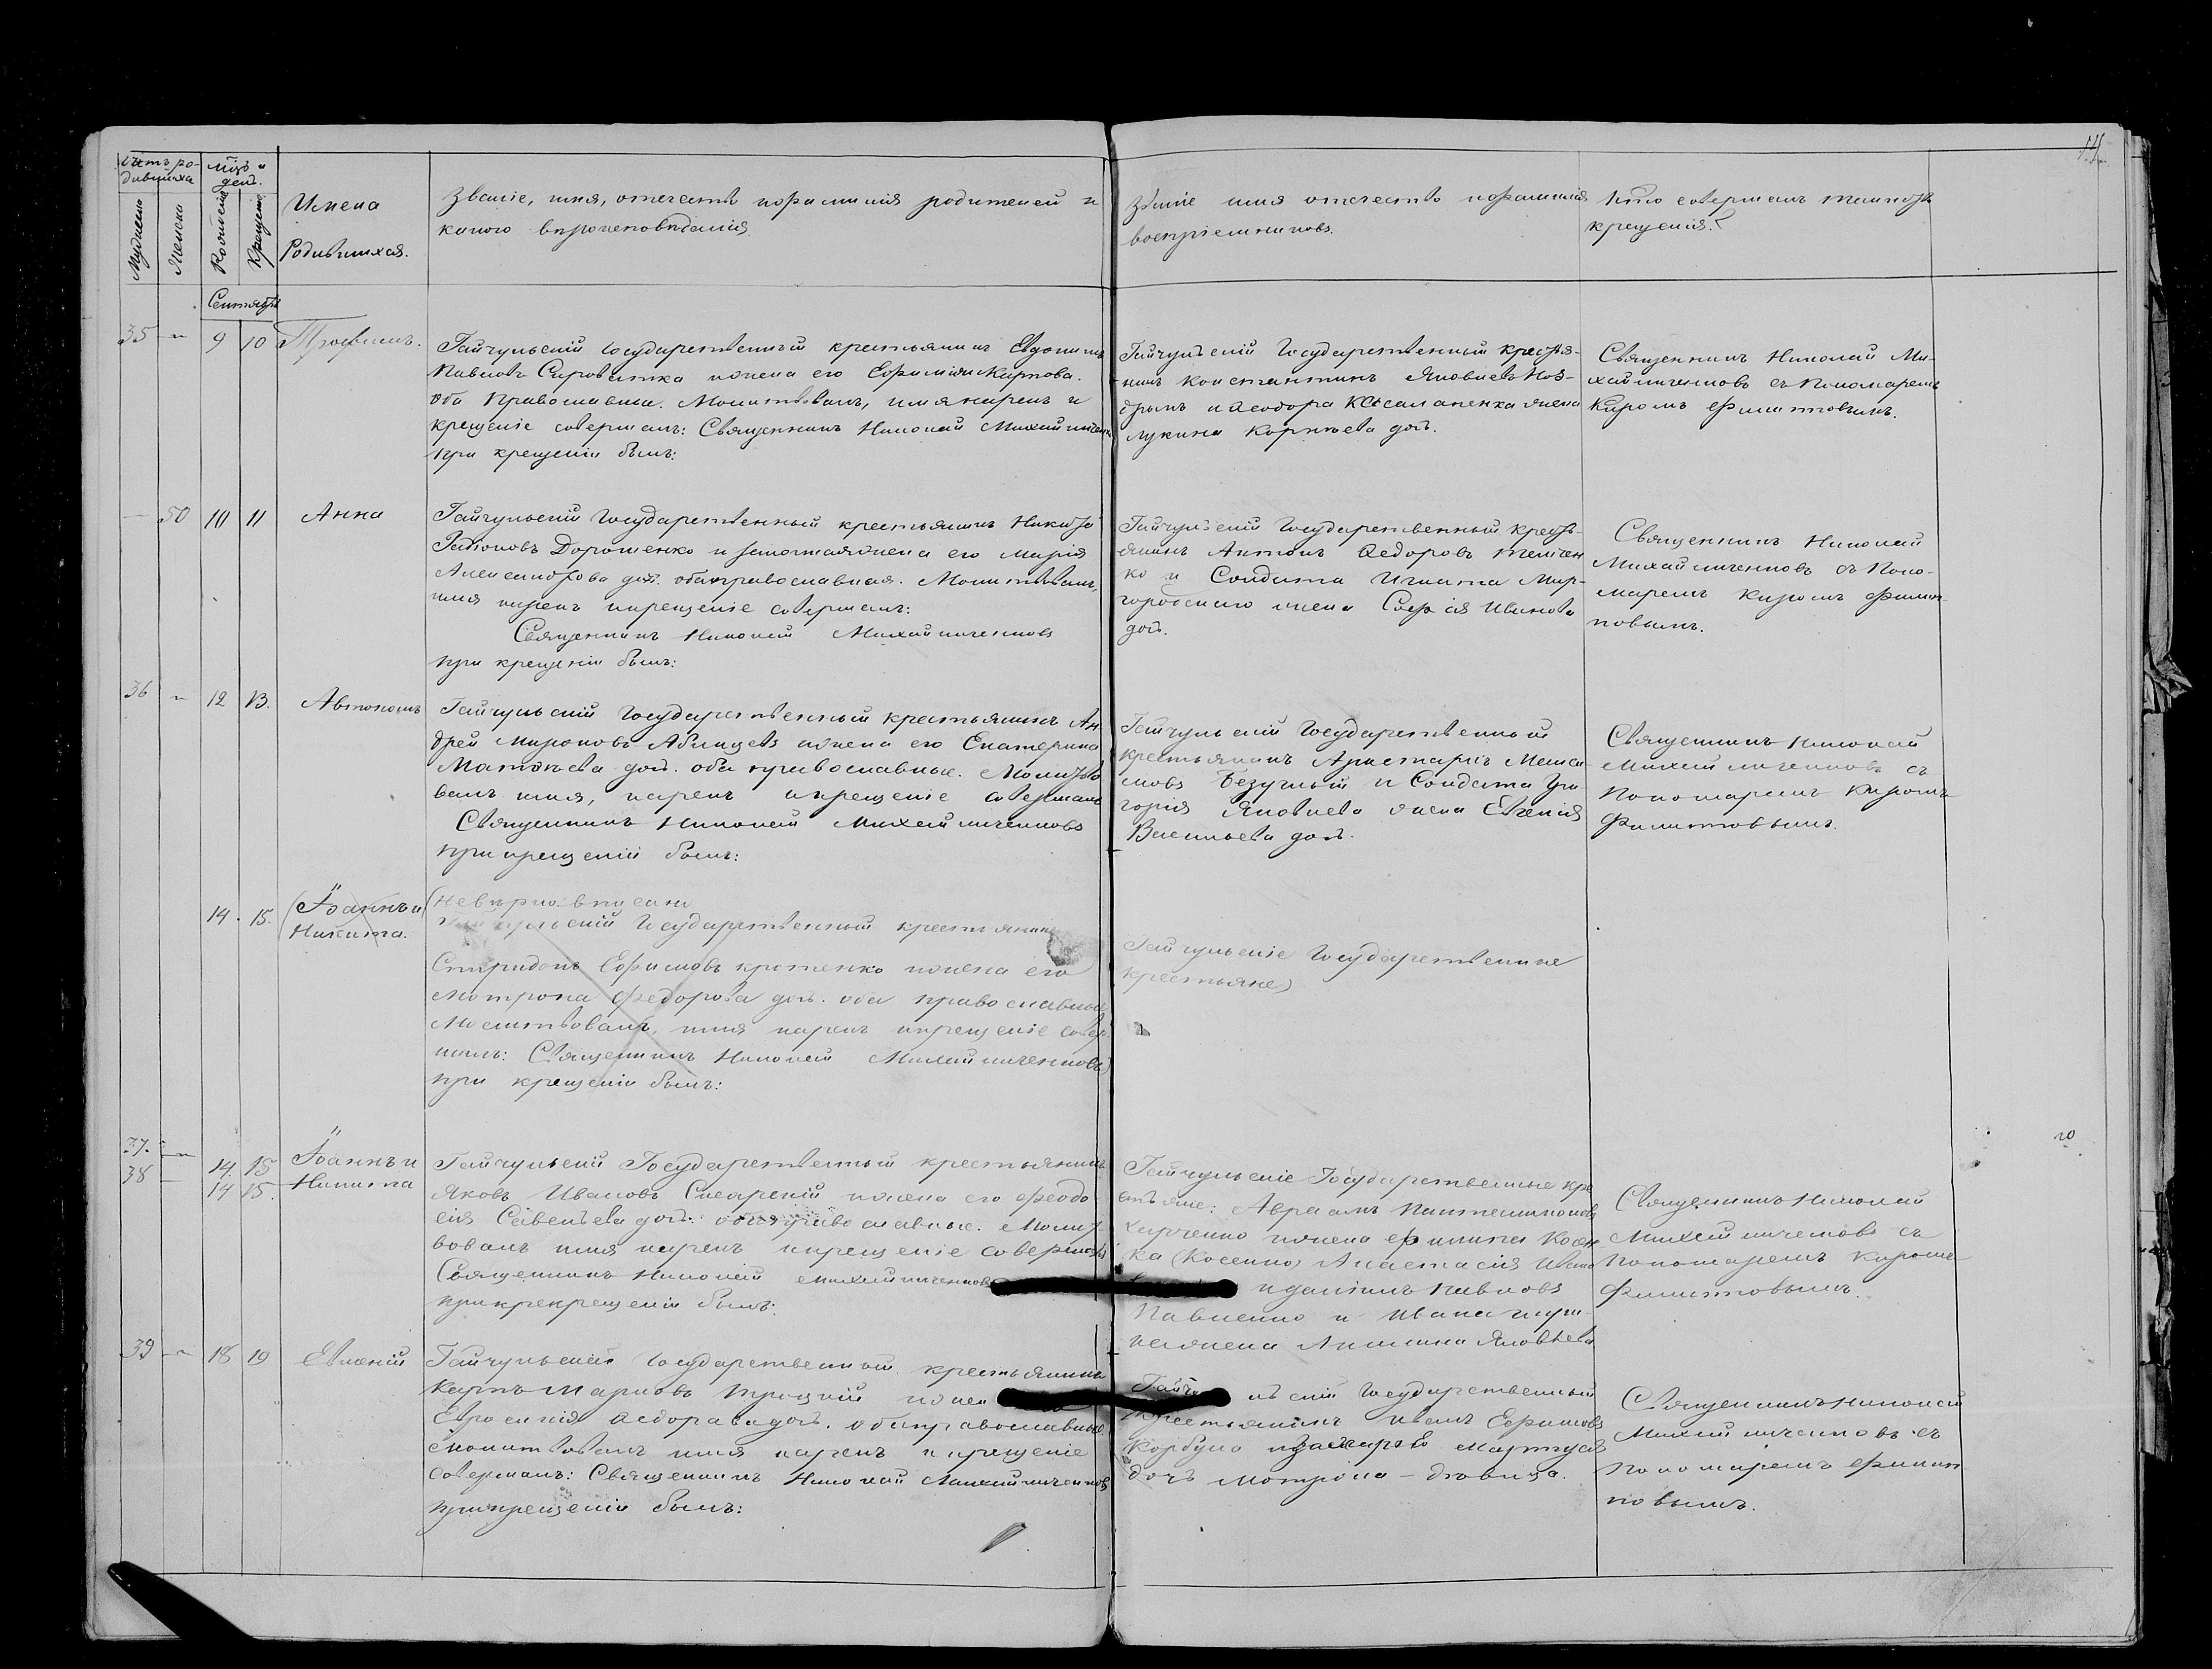 14
Счетъ ро-
дившихся
Мѣсяцъ и
день.
Мужеска
Женска
Рожденія
Крещенія
Имена
Родившихся.
Званіе, имя, отечество и фамилія родителей и
какого вѣроисповѣданія
Званіе имя отечество и фамилія
воспріемниковъ.
Кто совершалъ таинство
крещенія.
Сентябрь
35 — 9 10 Трофимъ.
Гайчульскій Государственный крестьянинъ Евдокимъ
Павловъ Сыроватка и жена его Ефимія Карпова.
Оба Православные. Молитвовалъ, имя нарекъ и
крещеніе совершалъ: Священникъ Николай Михайличенковъ
при крещеніи былъ:
Гайчульскій Государственный крестья-
нинъ Константинъ Яковлевъ
и Ѳеодора жена
Лукина Корнѣева доч.
Священникъ Николай Ми-
хайличенковъ съ Пономаремъ
Киромъ Филиповымъ.
— 50 10 11 Анна
Гайчульскій Государственный крестьянинъ Никита
Дорошенко и законная жена его Марія
Александрова доч. оба православная. Молитвовалъ,
имя нарекъ и крещеніе совершалъ:
Священникъ Николай Михайличенковъ
при крещеніи былъ:
Гайчульскій Государственный кресть-
янинъ Антонъ Ѳедоровъ
ко и Солдата Игната Мир-
городскаго жена Софія Иванова
доч.
Священникъ Николай
Михайличенковъ съ Поно-
маремъ Киромъ Филип-
повымъ.
36 — 12 13. Автономъ
Гайчульскій Государственный крестьянинъ Ан-
дрей Мироновъ и жена его Екатерина
Матвѣева доч. оба православные. Молитво
валъ имя, нарекъ и крещеніе совершалъ
Священникъ Николай Михайличенковъ
при крещеніи былъ:
Гайчульскій Государственный
крестьянинъ Аристархъ
Безуглый и Солдата Гри
горія Яковлева жена Евгенія
Васильева доч.
Священникъ Николай
Михайличенковъ съ
Пономаремъ Киромъ
Филиповымъ.
14. 15. (Іоаннъ и
Никита.
(Невѣрно вписано
Гайчульскій Государственный крестьянинъ
Спиридонъ Ефимовъ кротенко и жена его
Мотрона Федорова доч. оба православные
Молитвовалъ, имя нарекъ и крещеніе совер
шилъ: Священникъ Николай Михайличенковъ)
при крещеніи былъ:
Гайчульскіе Государственные
крестьяне)
37. —
38 —
14. 15
14 15.
Іоаннъ и
Никита
Гайчульскій Государственный крестьянинъ
Яковъ Ивановъ и жена его Феодо
сія Савельева доч. оба православные. Молит
вовалъ имя нарекъ и крещеніе совершалъ
Священникъ Николай Михайличенковъ
при крекрещеніи былъ:
Гайчульскіе Государственные кре
стьяне: Авраамъ Пантелимоновъ
Харченко и жена Филипа
ка (Косенко) Анастасія
и Даніилъ Павловъ
Павленко и Ивана
жена Акилина Яковлева
Священникъ Николай
Михайличенковъ съ
Пономаремъ Киромъ
Филиповымъ.
39 — 18 19 Евмѣній
Гайчульскій Государственный крестьянинъ
Карпъ Марковъ Троцкій и жен
Евросинія Ѳедорова доч. оба православные
Молитвовалъ имя нарекъ и крещеніе
совершалъ: Священникъ Николай Михайличенковъ
при крещеніи былъ:
Гайчульскій Государственный
крестьянинъ Иванъ Ефимовъ
дочь Мотрона - дѣвица.
Священникъ Николай
Михайличенковъ съ
Пономаремъ Филип
повымъ.